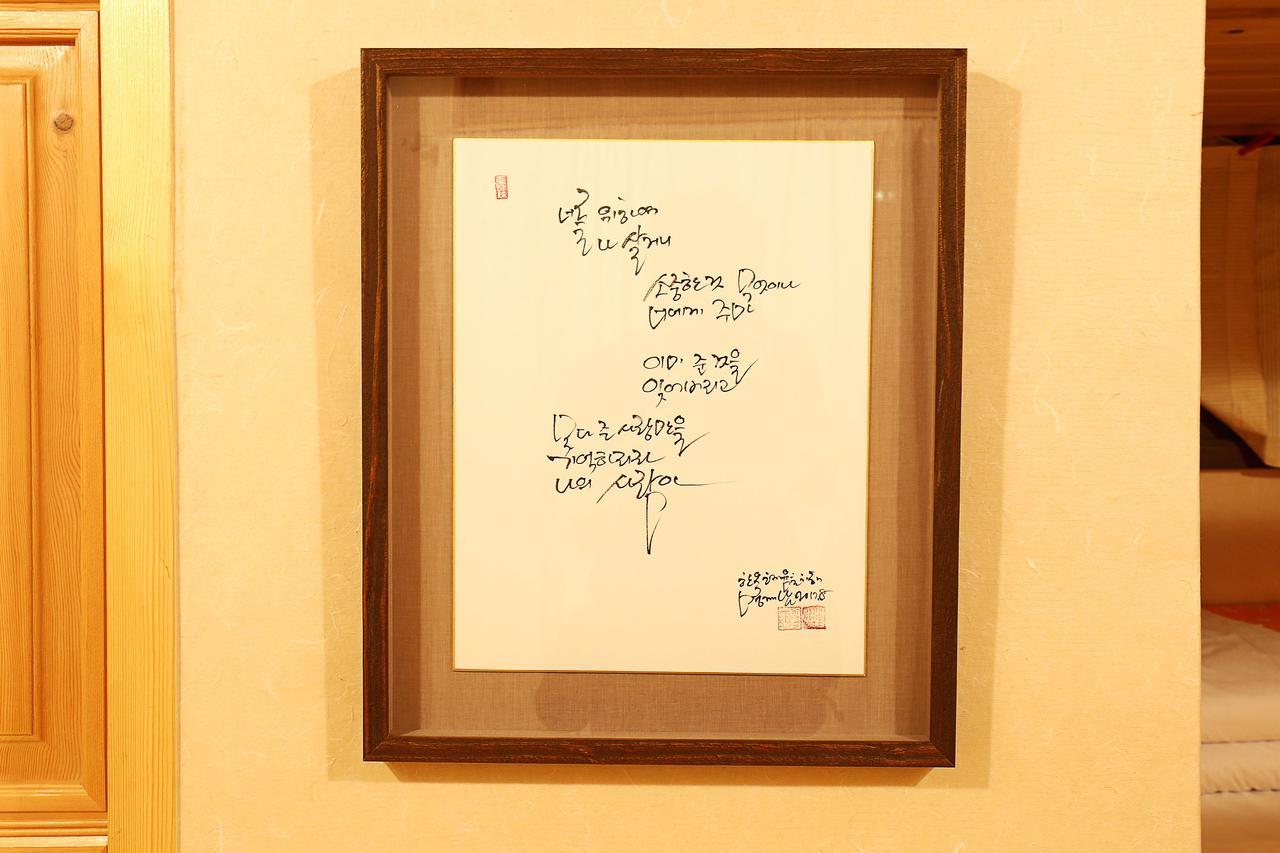 너를 위하여
나 살거니
소중한 것 무엇이나
너에게 주마
이미 준 것을
잊어버리고
못다 준 사랑만을
기억하리라
나의 사랑아